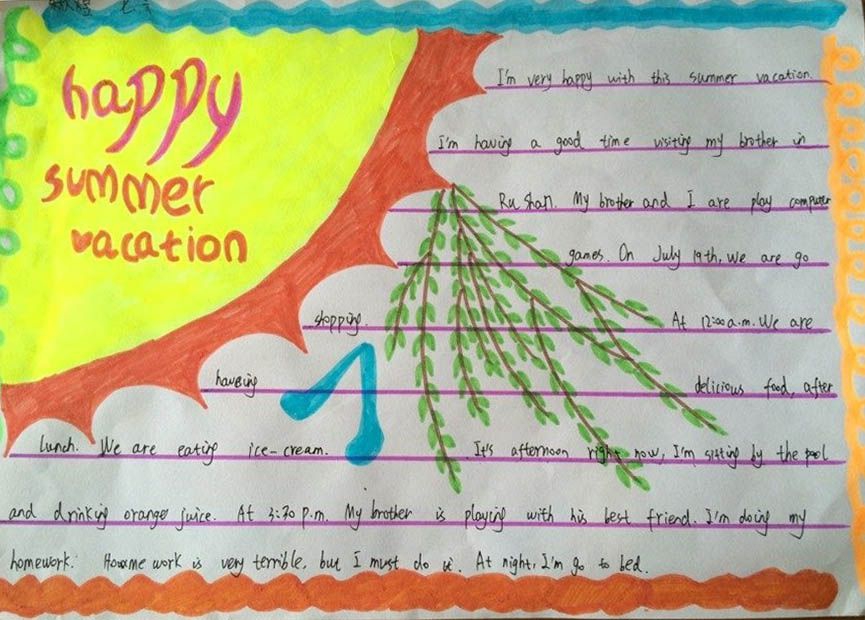 happy
summer
vacation
I'm very happy with this summer vacation.
I'm having a good time visiting my brother in
Ru Shan. My brother and I are play computer
games. On July 19th, we are go
shopping. At 12:00 a.m. We are
having delicious food, after
lunch. We are eating ice-cream. It's afternoon right now, I'm sitting by the pool
and drinking orange juice. At 3:30 p.m. My brother is playing with his best friend. I'm doing my
homework. Houme work is very terrible, but I must do it. At night, I'm go to bed.